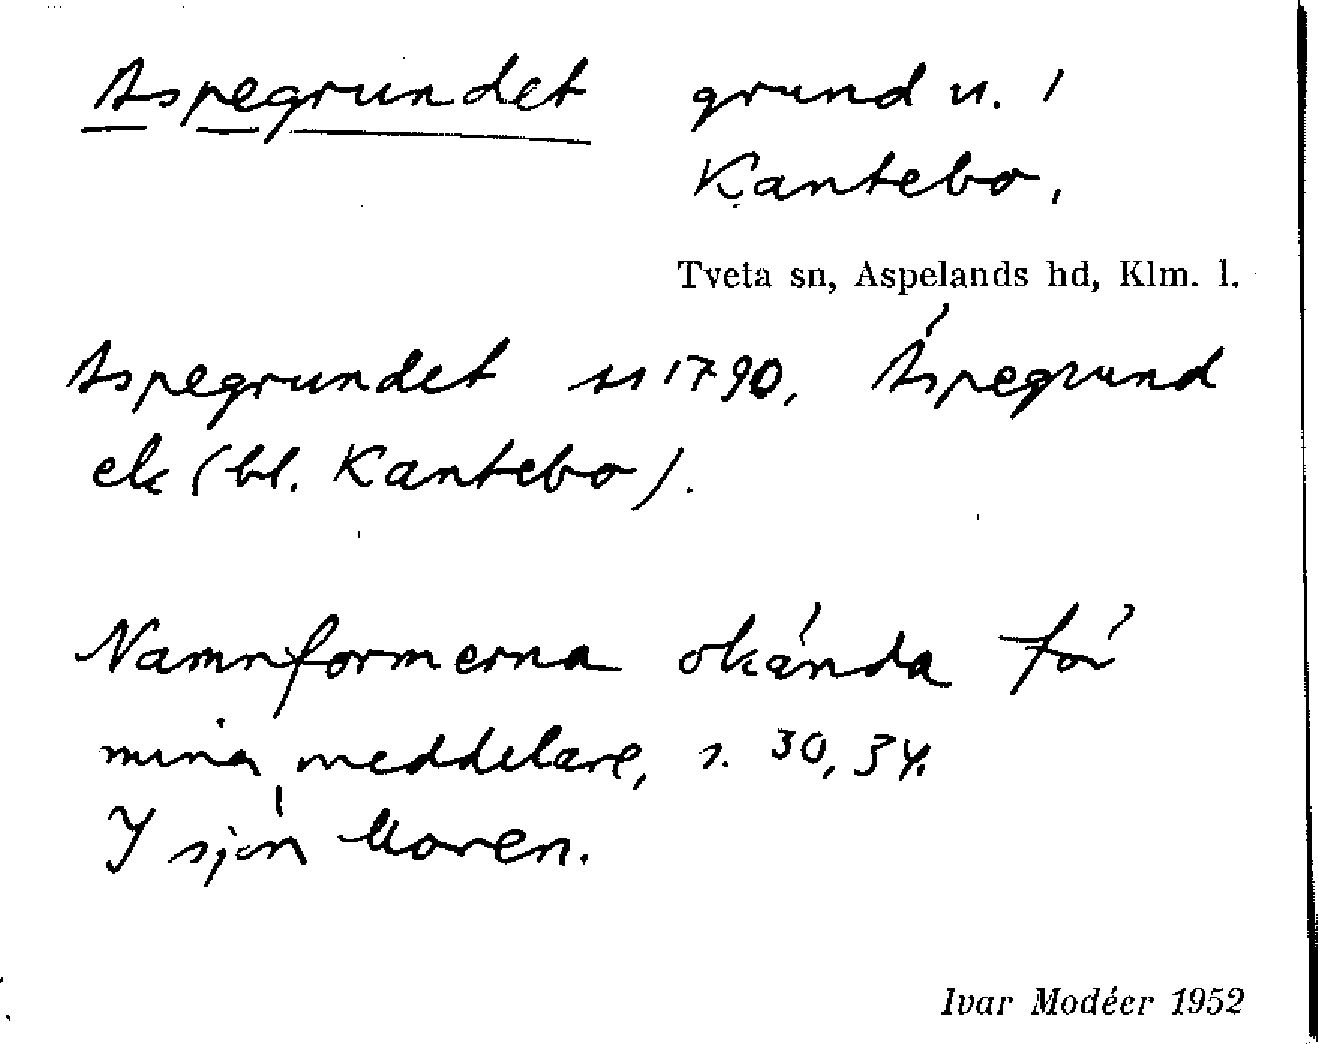 Aspegrundet grund u. /
Kantebo,
Tveta sn, Aspelands hd, Klm. l.
Aspegrundet ss 1790, Äspegrund
ek (bl. Kantebo).
Namnformerna okända för
mina meddelare, s. 30, 34.
I sjön Moren.
Ivar Modéer 1952